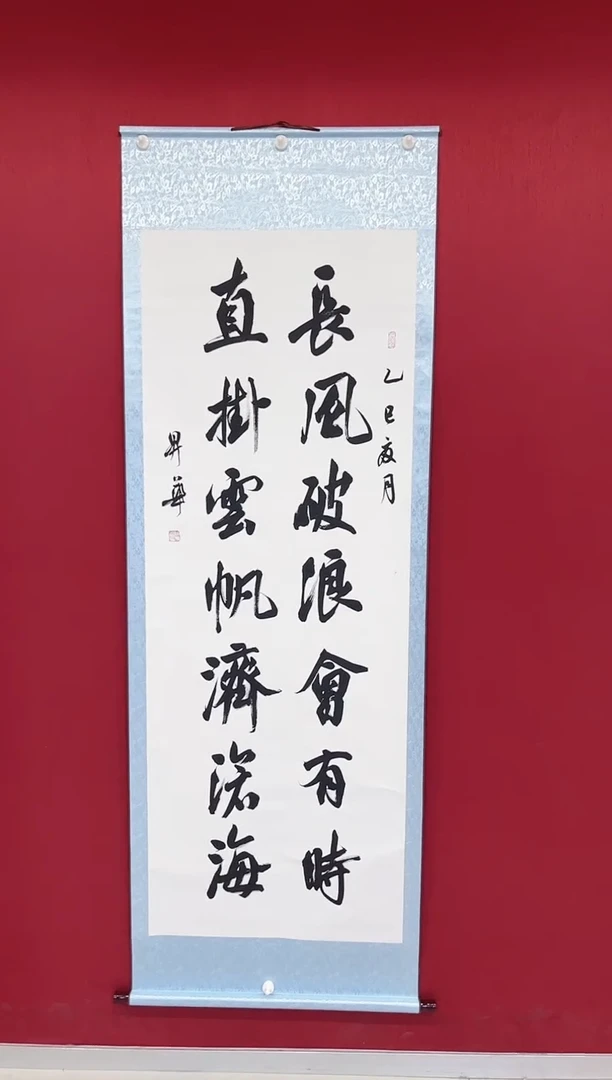 乙巳夏月
長風破浪會有時
直掛雲帆濟滄海
昇華